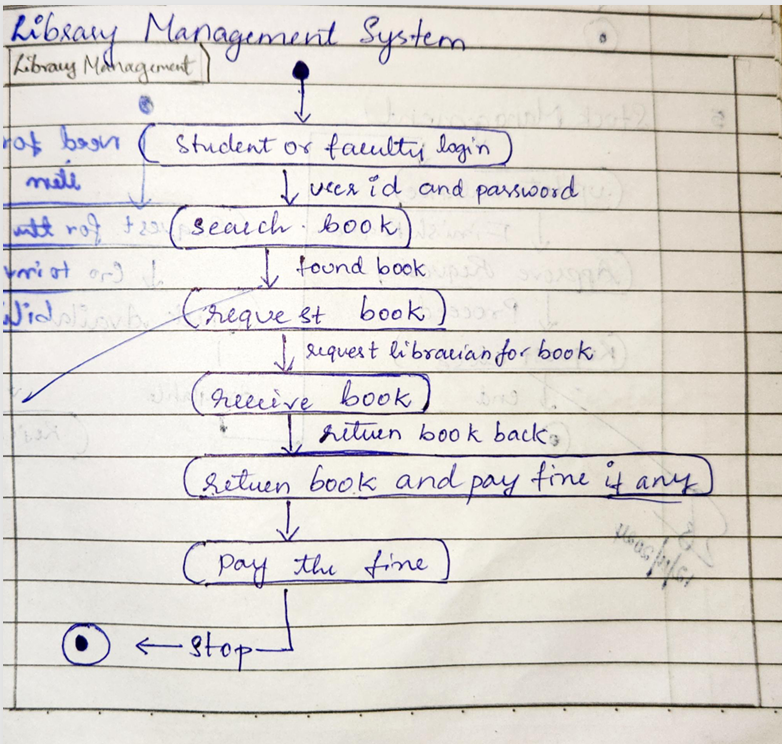 Library Management System
Library Management
Student or faculty login
user id and password
search book
found book
request book
request librarian for book
receive book
return book back
return book and pay fine if any
Pay the fine
Stop